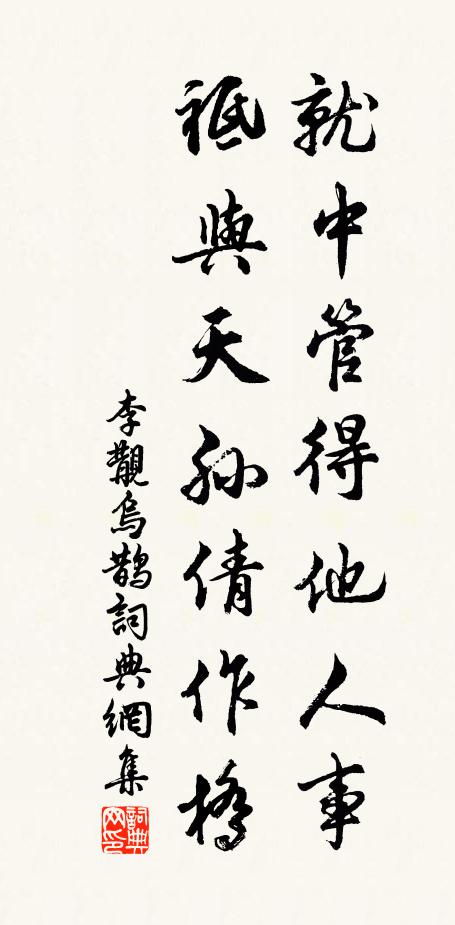 就中管得他人事
祗與天孫倩作橋
李覯烏鵲詞典網集
詞典网印